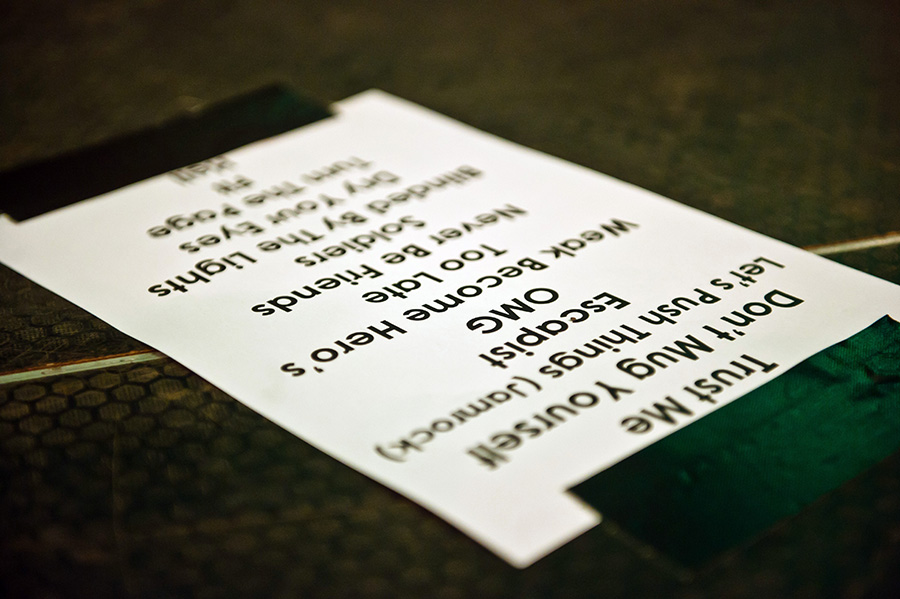 Trust Me
Don't Mug Yourself
Let's Push Things (Jamrock)
Escapist
OMG
Weak Become Hero's
Too Late
Never Be Friends
Soldiers
Blinded By The Lights
Dry Your Eyes
Turn The Page
Fit